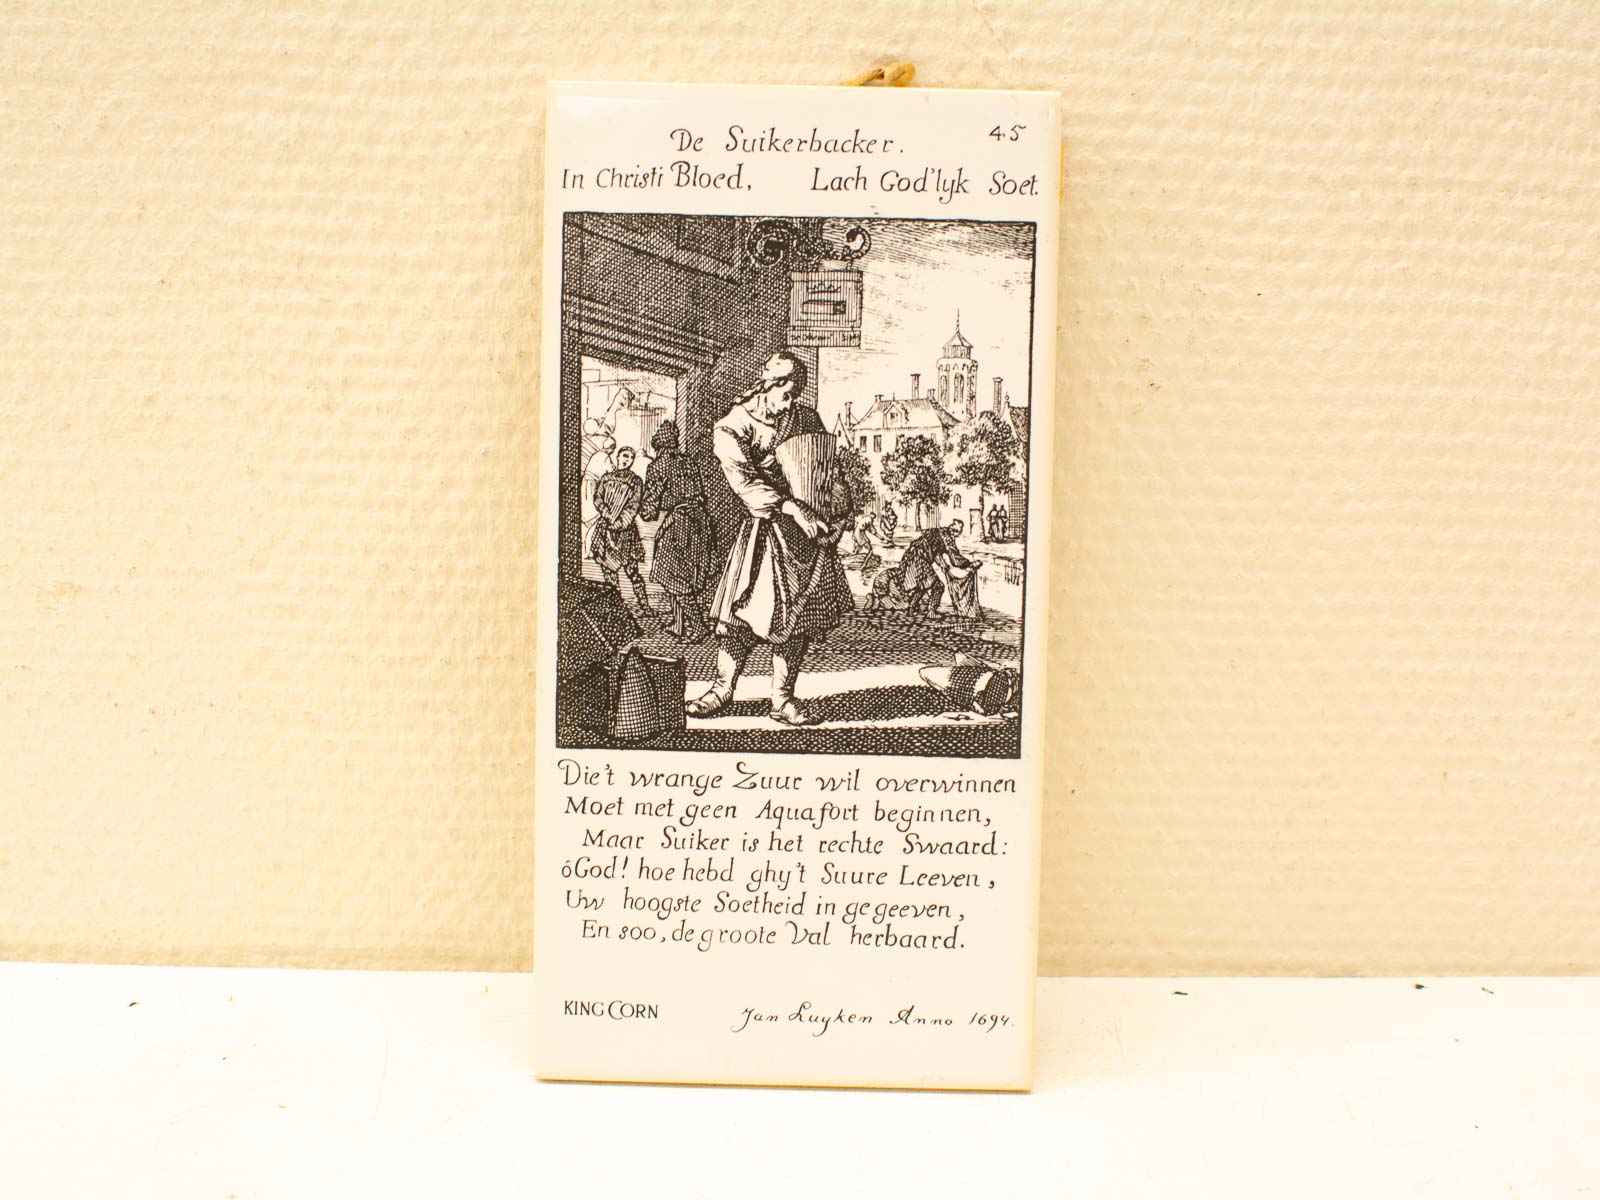 De Suikerbacker. 45
In Christi Bloed, Lach God'lyk Soet.
Die't wrange Zuur wil overwinnen
Moet met geen Aquafort beginnen,
Maar Suiker is het rechte Swaard:
ôGod! hoe hebd ghy't Suure Leeven,
Uw hoogste Soetheid in gegeeven,
En soo, de groote Val herbaard.
KING CORN Jan Luyken Anno 1694.